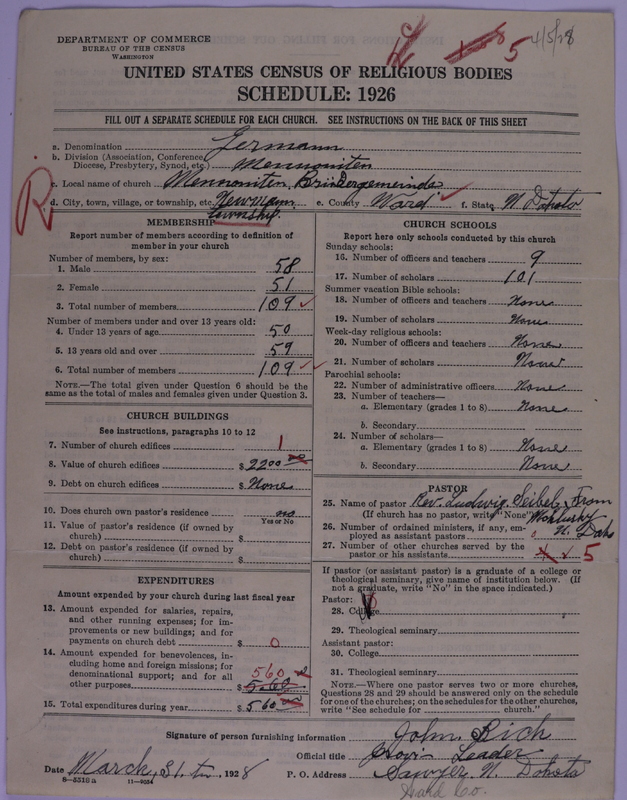 DEPARTMENT OF COMMERCE
BUREAU OF THE CENSUS
WASHINGTON
5
4/5/28
UNITED STATES CENSUS OF RELIGIOUS BODIES
SCHEDULE: 1926
FILL OUT A SEPARATE SCHEDULE FOR EACH CHURCH. SEE INSTRUCTIONS ON THE BACK OF THIS SHEET
a. Denomination Germann
b. Division (Association, Conference, Diocese, Presbytery, Synod, etc.) Mennoniten
c. Local name of church Mennoniten, Brüdergemeinde
d. City, town, village, or township, etc. Newmann township. e. County Ward f. State N. Dakota
R.
MEMBERSHIP
Report number of members according to definition of
member in your church
Number of members, by sex:
1. Male 58
2. Female 51
3. Total number of members 109
Number of members under and over 13 years old:
4. Under 13 years of age 50
5. 13 years old and over 59
6. Total number of members 109
NOTE.—The total given under Question 6 should be the
same as the total of males and females given under Question 3.
CHURCH BUILDINGS
See instructions, paragraphs 10 to 12
7. Number of church edifices 1
8. Value of church edifices $ 2200
9. Debt on church edifices $ None
10. Does church own pastor's residence no
Yes or No
11. Value of pastor's residence (if owned by
church) $
12. Debt on pastor's residence (if owned by
church) $
EXPENDITURES
Amount expended by your church during last fiscal year
13. Amount expended for salaries, repairs,
and other running expenses; for im-
provements or new buildings; and for
payments on church debt $ 0
14. Amount expended for benevolences, in-
cluding home and foreign missions; for
denominational support; and for all 560
other purposes $ 5.60
15. Total expenditures during year $ 560
CHURCH SCHOOLS
Report here only schools conducted by this church
Sunday schools:
16. Number of officers and teachers 9
17. Number of scholars 101
Summer vacation Bible schools:
18. Number of officers and teachers None
19. Number of scholars None
Week-day religious schools:
20. Number of officers and teachers None
21. Number of scholars None
Parochial schools:
22. Number of administrative officers None
23. Number of teachers—
a. Elementary (grades 1 to 8) None
b. Secondary
24. Number of scholars—
a. Elementary (grades 1 to 8) None
b. Secondary None
PASTOR
25. Name of pastor Rev. Ludwig. Seibel, From
(If church has no pastor, write "None")
26. Number of ordained ministers, if any, em- N. Dako
ployed as assistant pastors 0
27. Number of other churches served by the
pastor or his assistants 5
If pastor (or assistant pastor) is a graduate of a college or
theological seminary, give name of institution below. (If
not a graduate, write "No" in the space indicated.)
Pastor:
28. College
29. Theological seminary
Assistant pastor:
30. College
31. Theological seminary
NOTE.—Where one pastor serves two or more churches,
Questions 28 and 29 should be answered only on the schedule
for one of the churches; on the schedules for the other churches,
write "See schedule for church."
Signature of person furnishing information John. Rich
Official title Leader
Date March, 31. 1928 P. O. Address Sawyer N. Dakota
8—5518 a 11—9034
Ward Co.